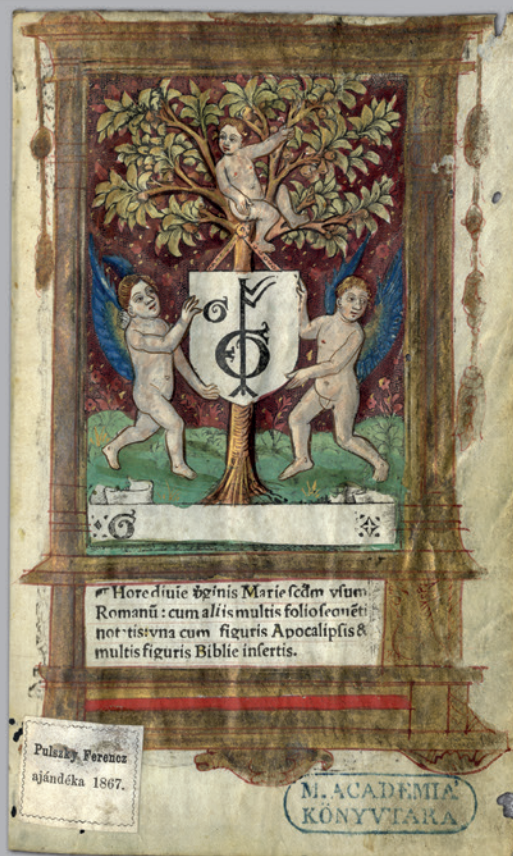 Hore diuie v̄ginis Marie scd̄m vsum
Romanū : cum aliis multis folio sequēti
notatis: vna cum figuris Apocalipsis &
multis figuris Biblie insertis.
Pulszky Ferencz
ajándéka 1867.
M. ACADEMIA
KÖNYVTÁRA